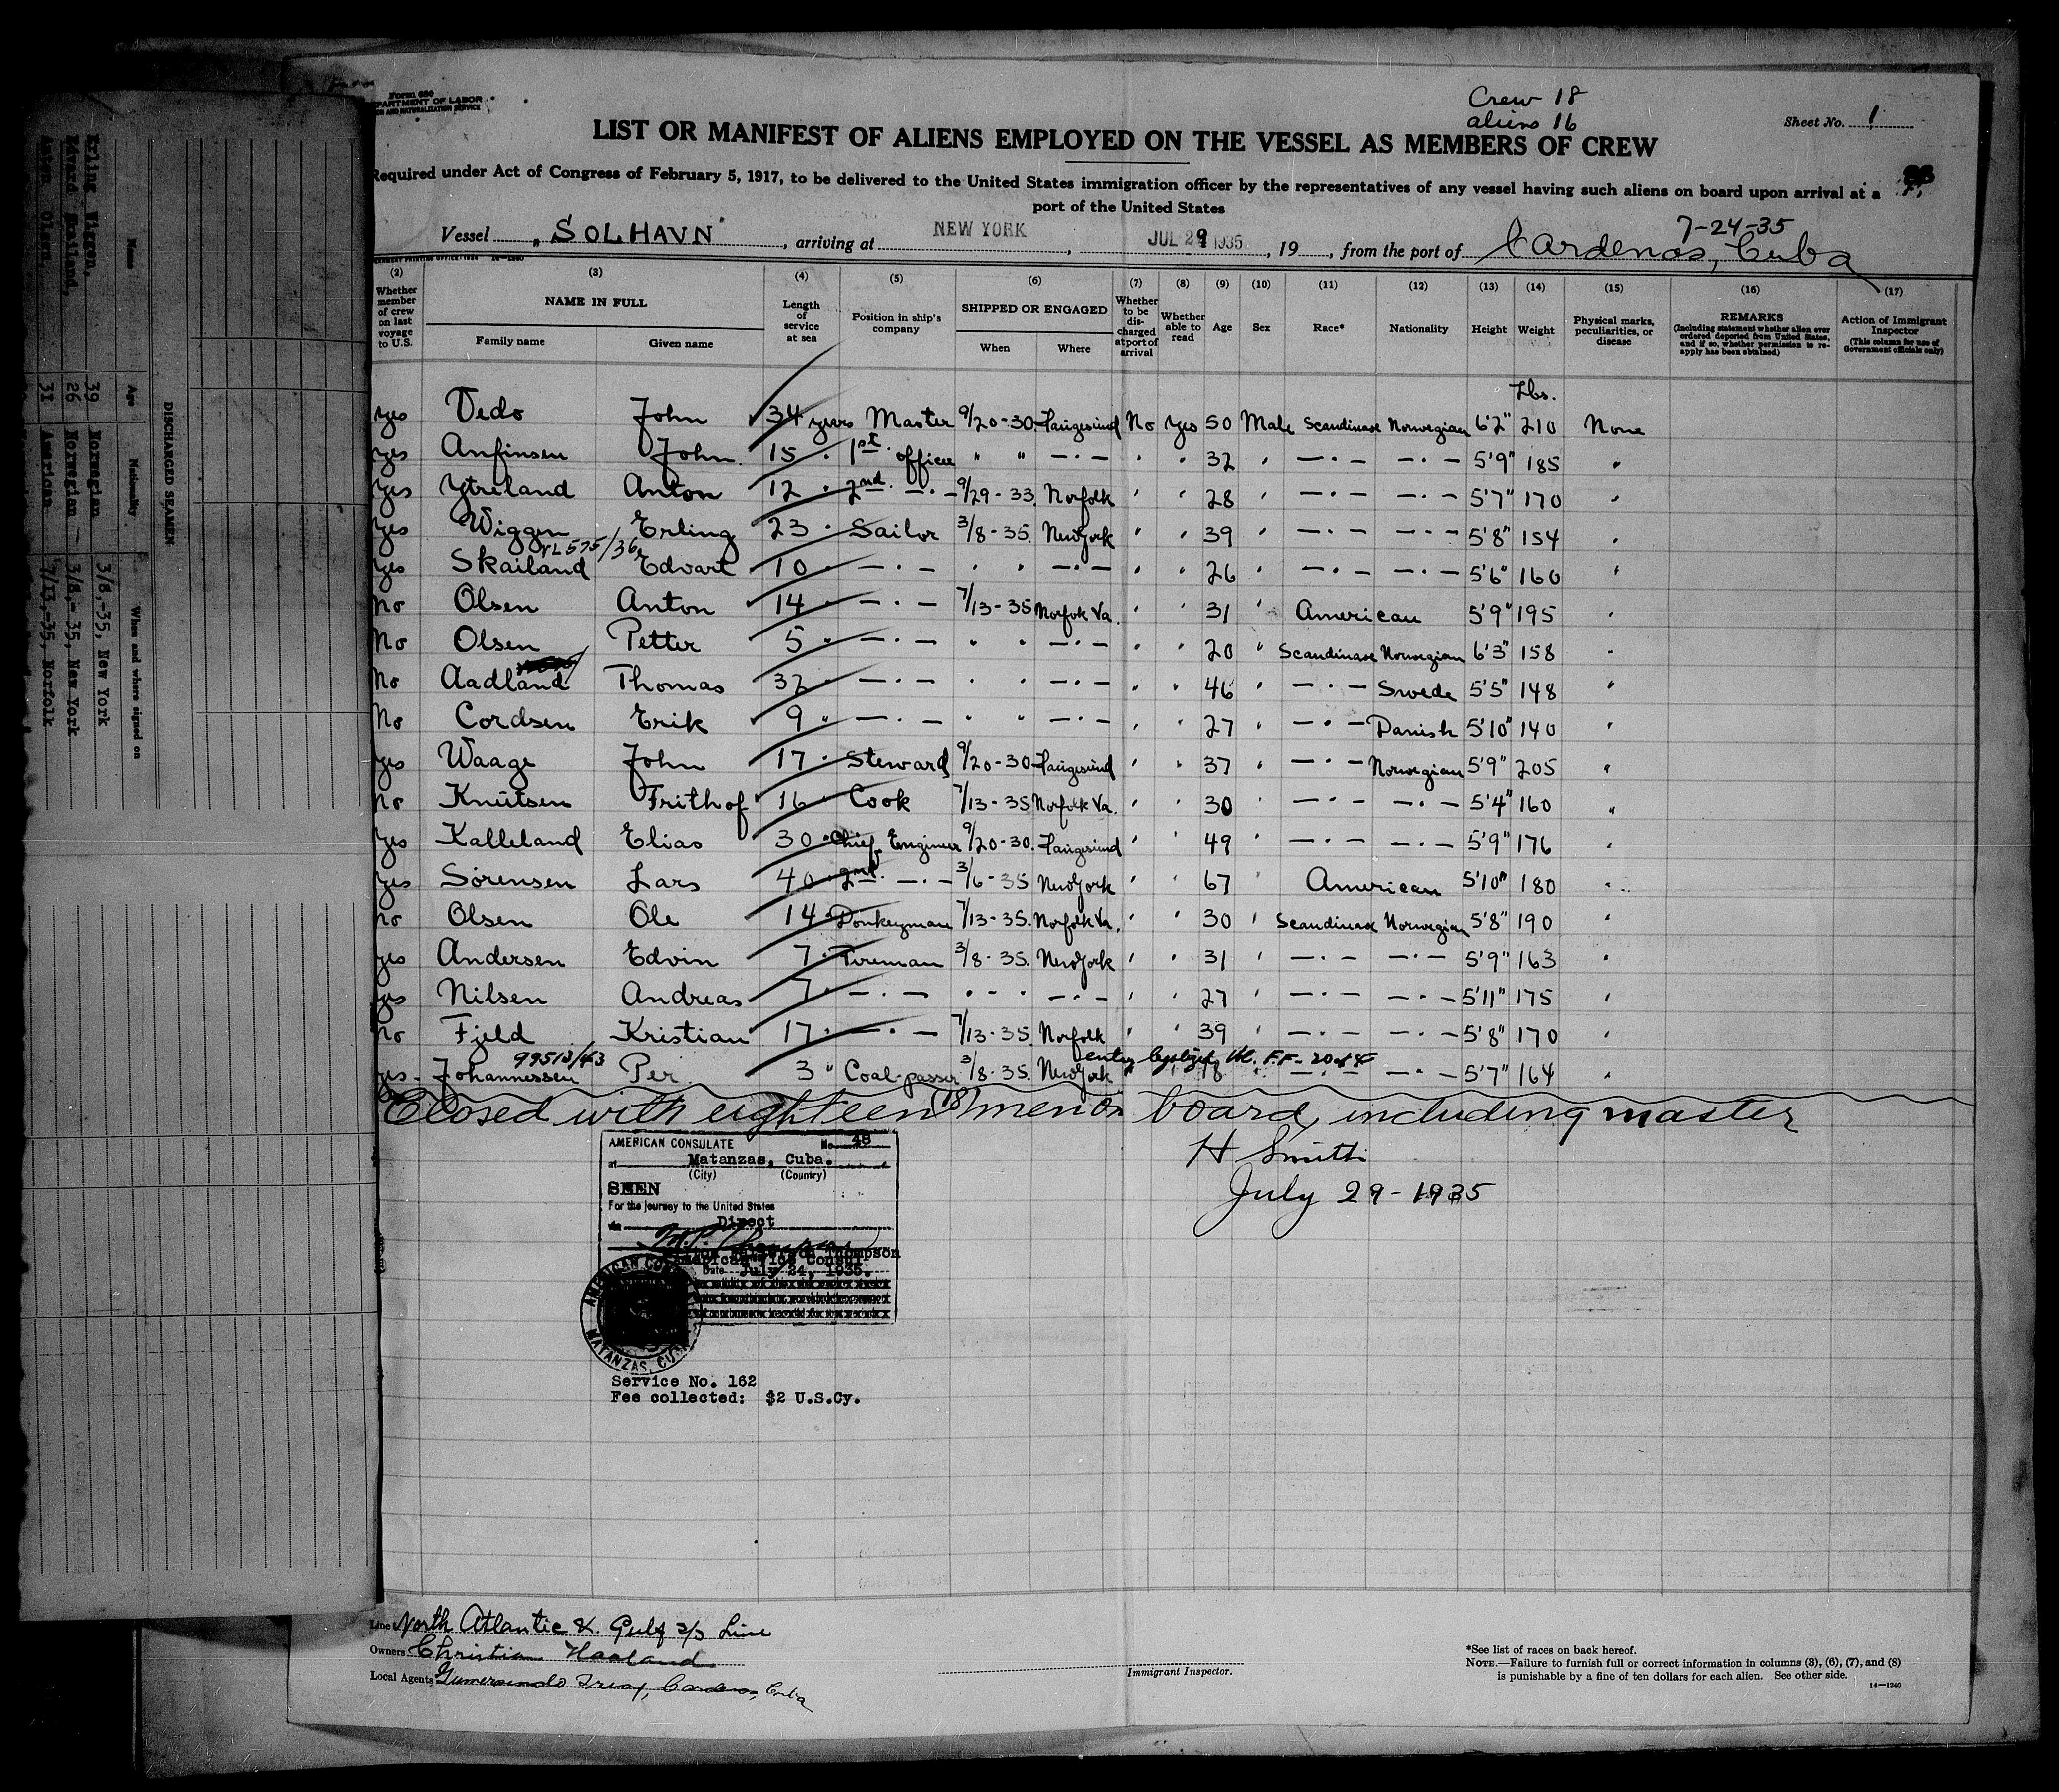 Form 680
DEPARTMENT OF LABOR
Crew 18
aliens 16
Sheet No. 1
LIST OR MANIFEST OF ALIENS EMPLOYED ON THE VESSEL AS MEMBERS OF CREW
Required under Act of Congress of February 5, 1917, to be delivered to the United States immigration officer by the representatives of any vessel having such aliens on board upon arrival at a
port of the United States
Vessel "SOLHAVN", arriving at NEW YORK, JUL 29 1935, 19, from the port of Cardenas, Cuba
7-24-35
(2) (3) (4) (5) (6) (7) (8) (9) (10) (11) (12) (13) (14) (15) (16) (17)
Whether member of crew on last voyage to U.S. NAME IN FULL Family name Given name Length of service at sea Position in ship's company SHIPPED OR ENGAGED When Where Whether to be discharged at port of arrival Whether able to read Age Sex Race* Nationality Height Weight Physical marks, peculiarities, or disease REMARKS (Including statement whether alien ever ordered deported from United States, and if so, whether permission to reapply has been obtained) Action of Immigrant Inspector (This column for use of Government officials only)
Lbs.
yes Vedo John 34 years Master 9/20-30 Haugesund No yes 50 Male Scandinav Norwegian 6'2" 210 None
yes Anfinsen John 15 " 1st officer " " — " — " " 32 " — " — — " — 5'9" 185 "
yes Ytreland Anton 12 " 2nd — " — 9/29-33 Norfolk " " 28 " — " — — " — 5'7" 170 "
yes Wiggen Erling 23 " Sailor 3/8-35 New York " " 39 " — " — — " — 5'8" 154 "
yes Skailand Edvart 10 " — " — " " — " — " " 26 " — " — — " — 5'6" 160 "
no Olsen Anton 14 " — " — 7/13-35 Norfolk Va. " " 31 " American 5'9" 195 "
No Olsen Petter 5 " — " — " " — " — " " 20 " Scandinav Norwegian 6'3" 158 "
No Aadland Thomas 32 " — " — " " — " — " " 46 " — " — Swede 5'5" 148 "
No Cordsen Erik 9 " — " — " " — " — " " 27 " — " — Danish 5'10" 140 "
yes Waage John 17 " Steward 9/20-30 Haugesund " " 37 " — " — Norwegian 5'9" 205 "
no Knutsen Frithof 16 " Cook 7/13-35 Norfolk Va. " " 30 " — " — — " — 5'4" 160 "
yes Kalleland Elias 30 " Chief Engineer 9/20-30 Haugesund " " 49 " — " — — " — 5'9" 176 "
yes Sørensen Lars 40 " 2nd — " — 3/6-35 New York " " 67 " American 5'10" 180 "
no Olsen Ole 14 " Donkeyman 7/13-35 Norfolk Va. " " 30 " Scandinav Norwegian 5'8" 190 "
yes Andersen Edvin 7 " Fireman 3/8-35 New York " " 31 " — " — — " — 5'9" 163 "
yes Nilsen Andreas 7 " — " — " " — " — " " 27 " — " — — " — 5'11" 175 "
no Fjeld Kristian 17 " — " — 7/13-35 Norfolk " " 39 " — " — — " — 5'8" 170 "
99513/43
yes Johannessen Per 3 " Coal-passer 3/8-35 New York " " 18 " — " — — " — 5'7" 164 "
Closed with eighteen (18) men on board, including master
H Smith
July 29-1935
AMERICAN CONSULATE No. 48
at Matanzas, Cuba.
(City) (Country)
SEEN
For the journey to the United States
via Direct
Thompson
American Vice Consul
Date July 24, 1935.
AMERICAN CONSULATE MATANZAS, CUBA
Service No. 162
Fee collected: $2 U.S.Cy.
Line North Atlantic & Gulf S/S Line
Owners Christian Haaland
Local Agents Gumersindo Cardenas, Cuba
Immigrant Inspector.
*See list of races on back hereof.
NOTE.—Failure to furnish full or correct information in columns (3), (6), (7), and (8)
is punishable by a fine of ten dollars for each alien. See other side.
14—1240
DISCHARGED SEAMEN
Name Age Nationality When and where signed on
Erling Wiggen, 39 Norwegian 3/8,-35, New York
Edvard Skailand, 26 Norwegian 3/8,-35, New York
Anton Olsen, 31 American 7/13,-35, Norfolk